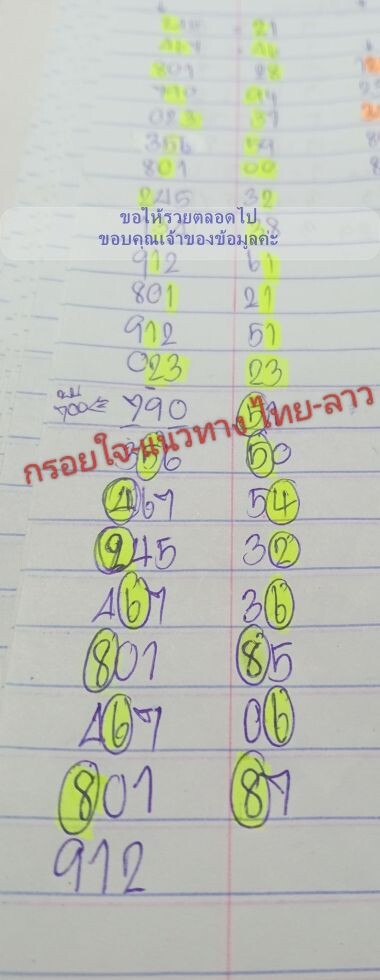 801 28
023 37
356 59
801 00
245 32
ขอให้รวยตลอดไป
ขอบคุณเจ้าของข้อมูลค่ะ
912 61
801 21
912 51
023 23
790
กรอยใจ-แนวทาง ไทย-ลาว
356 50
467 54
245 32
467 36
801 85
467 06
801 87
912